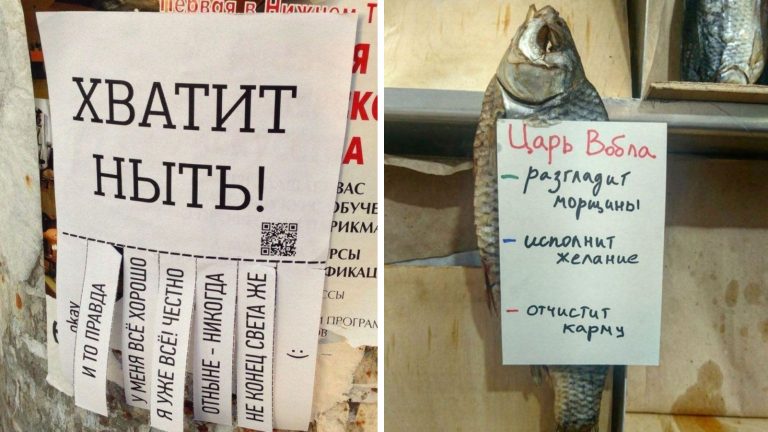 Первая в Нижнем Т
ХВАТИТ
НЫТЬ!
ВАС
ОБУЧЕ
РИКМА
РСЫ
ФИКАЦ
ПРОГРАМ
okay
И ТО ПРАВДА
У МЕНЯ ВСЁ ХОРОШО
Я УЖЕ ВСЁ! ЧЕСТНО
ОТНЫНЕ - НИКОГДА
НЕ КОНЕЦ СВЕТА ЖЕ
:)
Царь Вобла
- разгладит
морщины
- исполнит
желание
- отчистит
карму